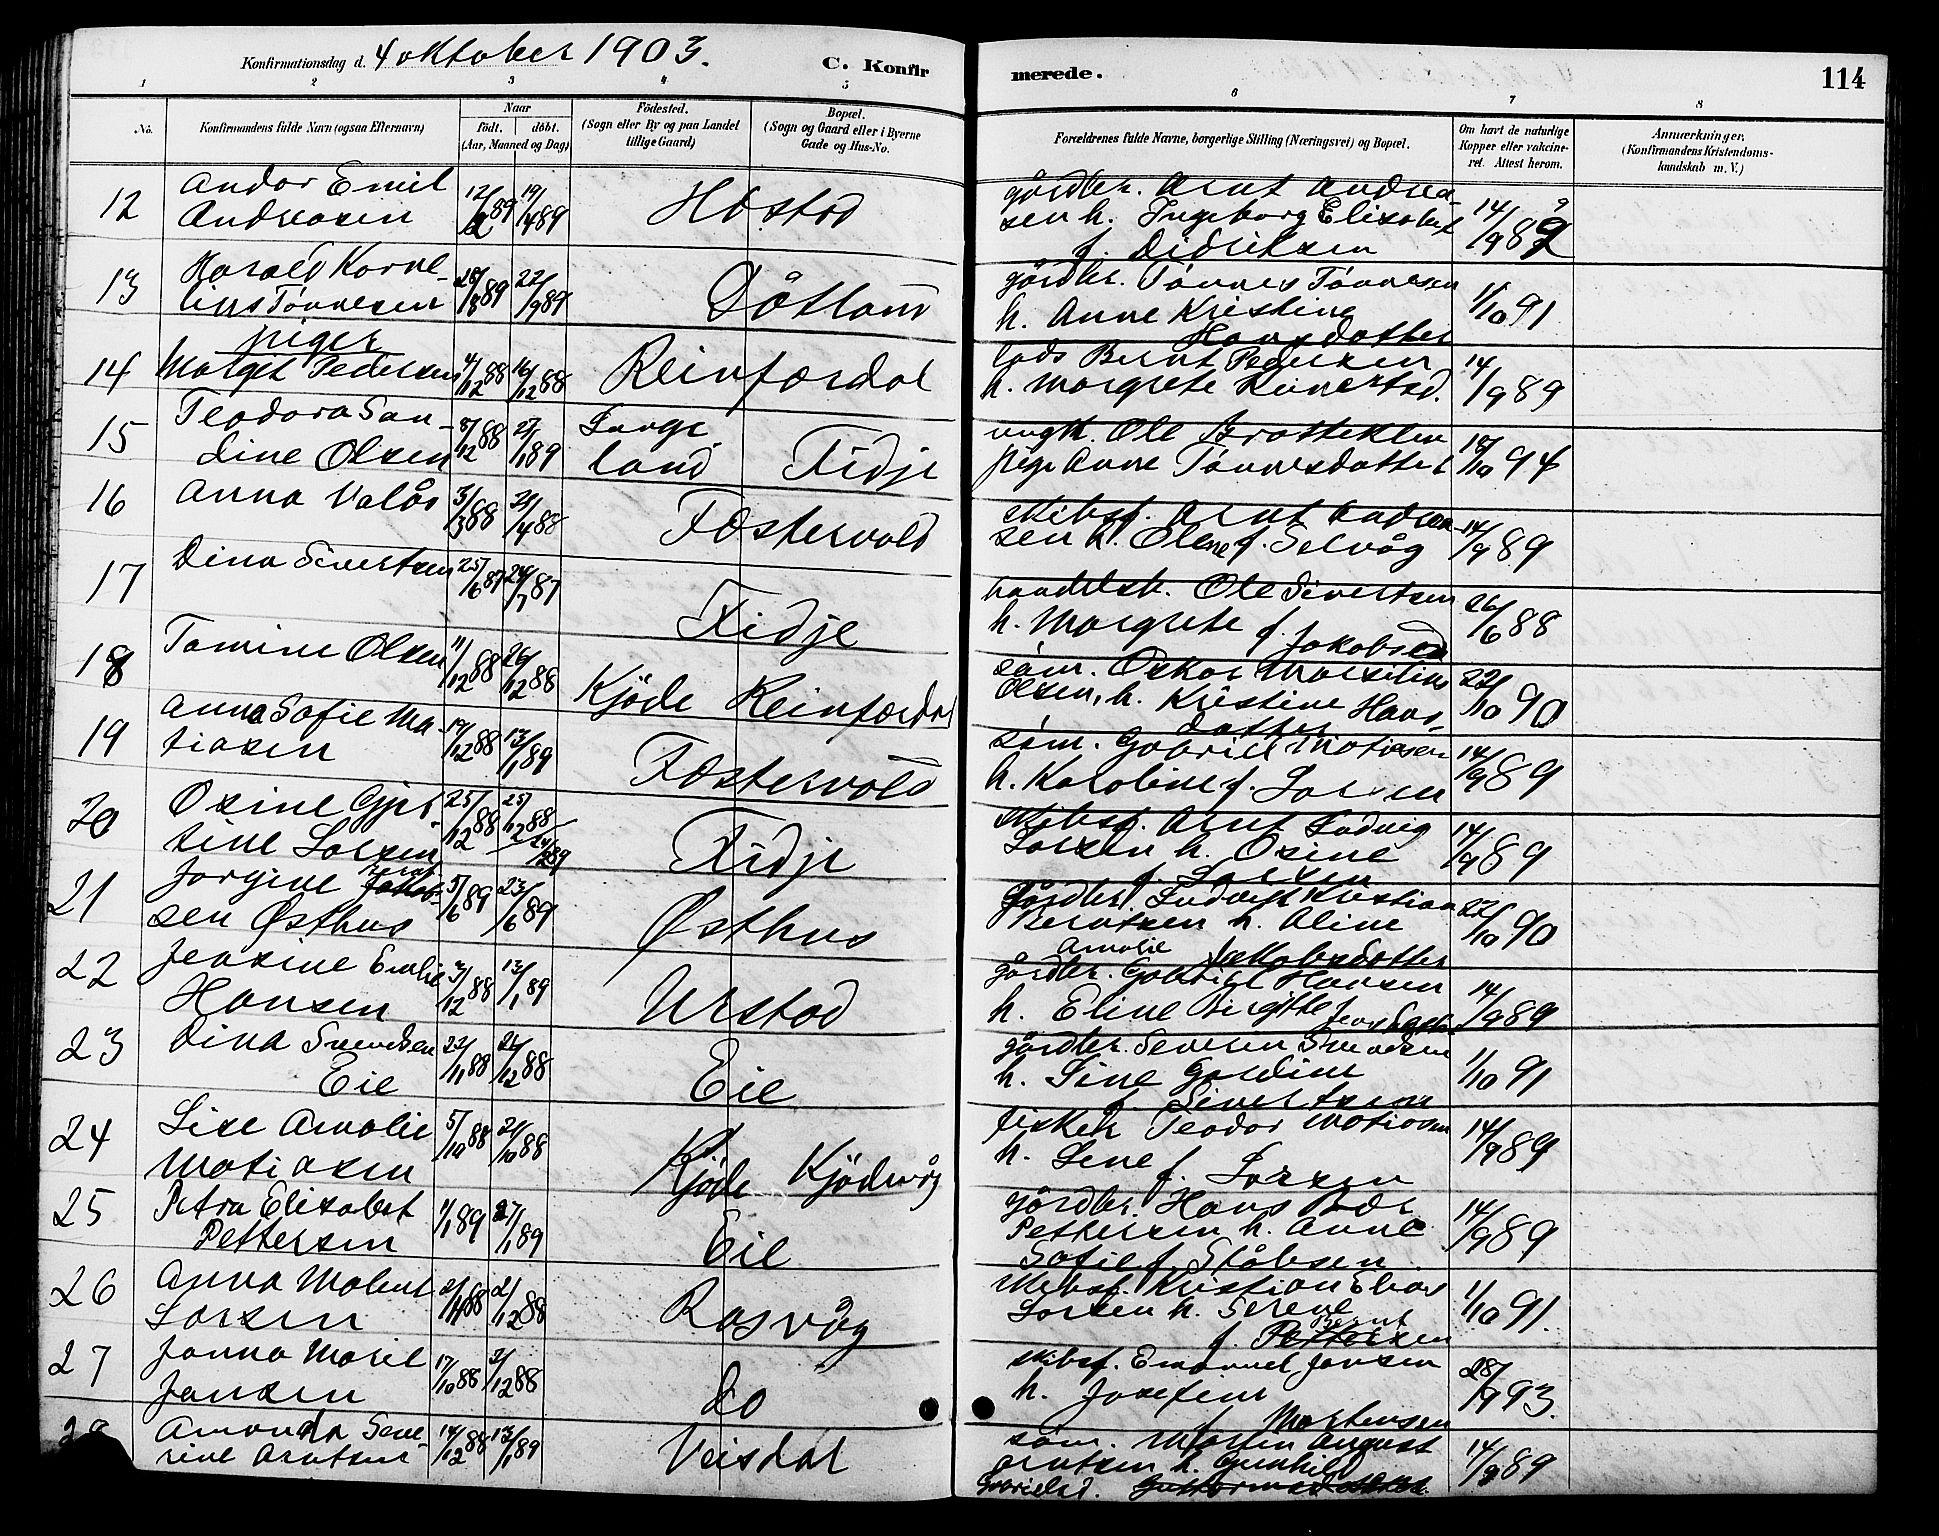 Konfirmationsdag d. 4 oktober 1903.
C. Konfirmerede.
114
1 2 3 4 5 6 7 8
No.
Konfirmandens fulde Navn (ogsaa Efternavn)
Naar
födt. döbt.
(Aar, Maaned og Dag)
Födested.
(Sogn eller By og paa Landet
tillige Gaard)
Bopæl.
(Sogn og Gaard eller i Byerne
Gade og Hus-No.
Forældrenes fulde Navne, borgerlige Stilling (Næringsvei) og Bopæl.
Om havt de naturlige
Kopper eller vakcine-
ret. Attest herom.
Anmærkninger.
(Konfirmandens Kristendoms-
kundskab m. V.)
12 Andor Emil
Andreasen
12/2 89 19/4 89
Hæstad
gårdbr. Arnt Andrea-
sen h. Ingeborg Elisabet
f. Didriksen
14/9 89
13 Harald Korne-
lius Tönnesen
28/8 89 22/9 89
Dåtland
gårdbr. Tönnes Tönnesen
h. Anne Kristine
Hansdatter
1/10 91
piger
14 Margit Pedersen 4/12 88 16/12 88
Reinfærdal
lods Bernt Pedersen
h. Margrete
14/9 89
15 Teodora San-
dine Olsen
8/12 88 27/1 89
Lange
land
Fidje
ungk. Ole Bratteklev
pige Anne Tönnesdatter
18/10 94
16 Anna Valås 3/3 88 21/4 88
Fæstervold
skibsf. Arnt Andrea-
sen h. Olene f. Selvåg
14/9 89
17 Dina Sivertsen 25/6 87 24/7 87
Fidje
handelsk. Ole Sivertsen
h. Margrete f. Jakobsen
26/6 88
18 Tomine Olsen 11/12 88 26/12 88
Kjöde Reinfærdal
söm. Oskar Marsilius
Olsen, h. Kristine Hans-
datter
22/10 90
19 Anna Sofie Ma-
tiasen
19/12 88 13/1 89
Fæstervold
söm. Gabriel Matiasen
h. Karoline f. Larsen
14/9 89
20 Osine Gjer-
tine Larsen
25/12 88 25/12 88
Fidje
skibsf. Arnt Ludvig
Larsen h. Osine
f. Larsen
14/9 89
21 Jorgine
sen Østhus
5/6 89 23/6 89
Østhus
gårdbr. Ludvik Kristian
Berntsen h. Aline
Amalie Jakobsdatter
22/10 90
22 Jensine Emilie
Hansen
3/12 88 13/1 89
Urstad
gårdbr. Gabriel Hansen
h. Eline Birgitte
14/9 89
23 Dina Svendsen
Eie
22/11 88 26/12 88
Eie
gårdbr. Severin Svendsen
h. Sine Gurdine
f. Sivertsen
1/10 91
24 Lise Amalie
Matiasen
5/10 88 21/10 88
Kjöde Kjödevåg
fisker Teodor Matiasen
h. Lene f. Larsen
14/9 89
25 Petra Elisabet
Pettersen
1/1 89 27/1 89
Eie
gårdbr. Hans Peder
Pettersen h. Anne
Sofie f. Ståbsen
14/9 89
26 Anna Mabert
Larsen
2/11 88 2/12 88
Rasvåg
skibsf. Kristian Elias
Larsen h. Serene
f. Berntsen
1/10 91.
27 Janna Marie
Jansen
17/10 88 2/12 88
do
skibsf. Emanuel Jansen
h. Josefine
f. Mortensen
28/9 93.
28 Amanda Seve-
rine Arntsen
14/12 88 13/1 89
Veisdal
söm. Martin August
Arntsen h. Gunhild
14/9 89